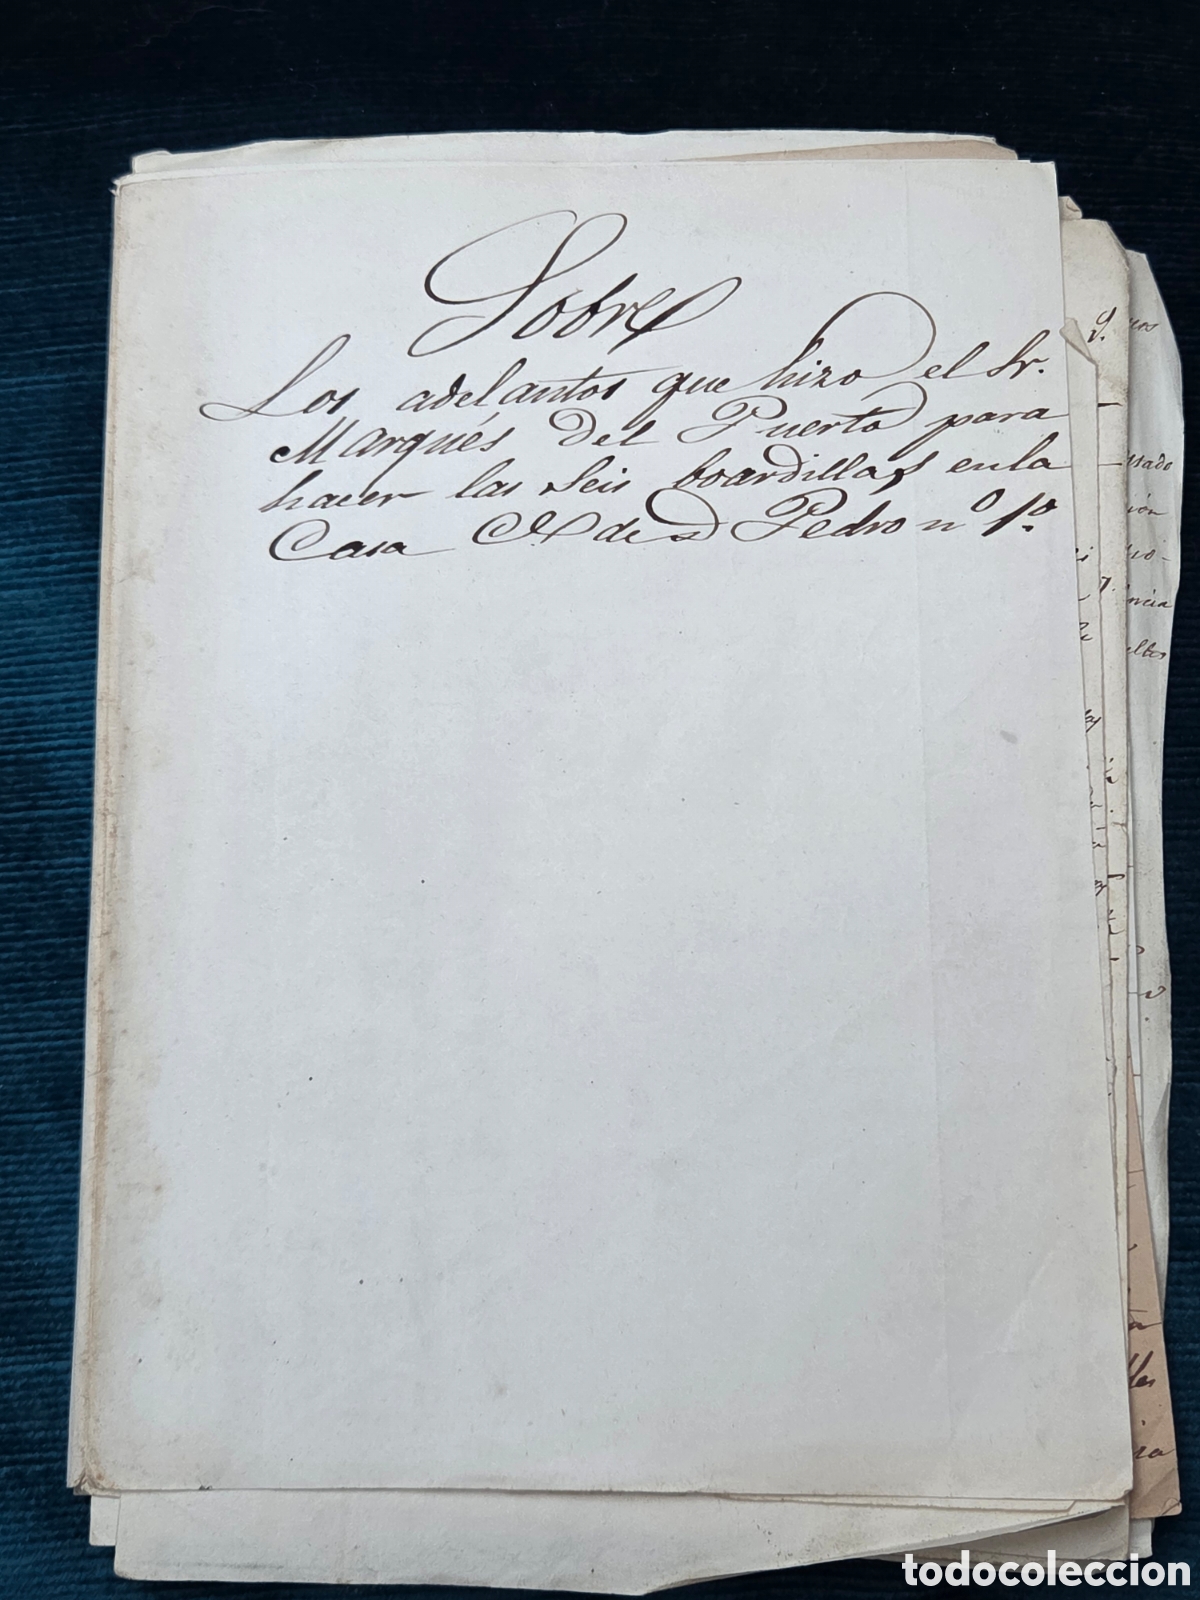 Sobre
Los adelantos que hizo el Sr.
Marqués del Puerto para
hacer las seis boardillas en la
Casa Cl de Sn Pedro nº 1º
9.
stado
ión
ncia
todocoleccion